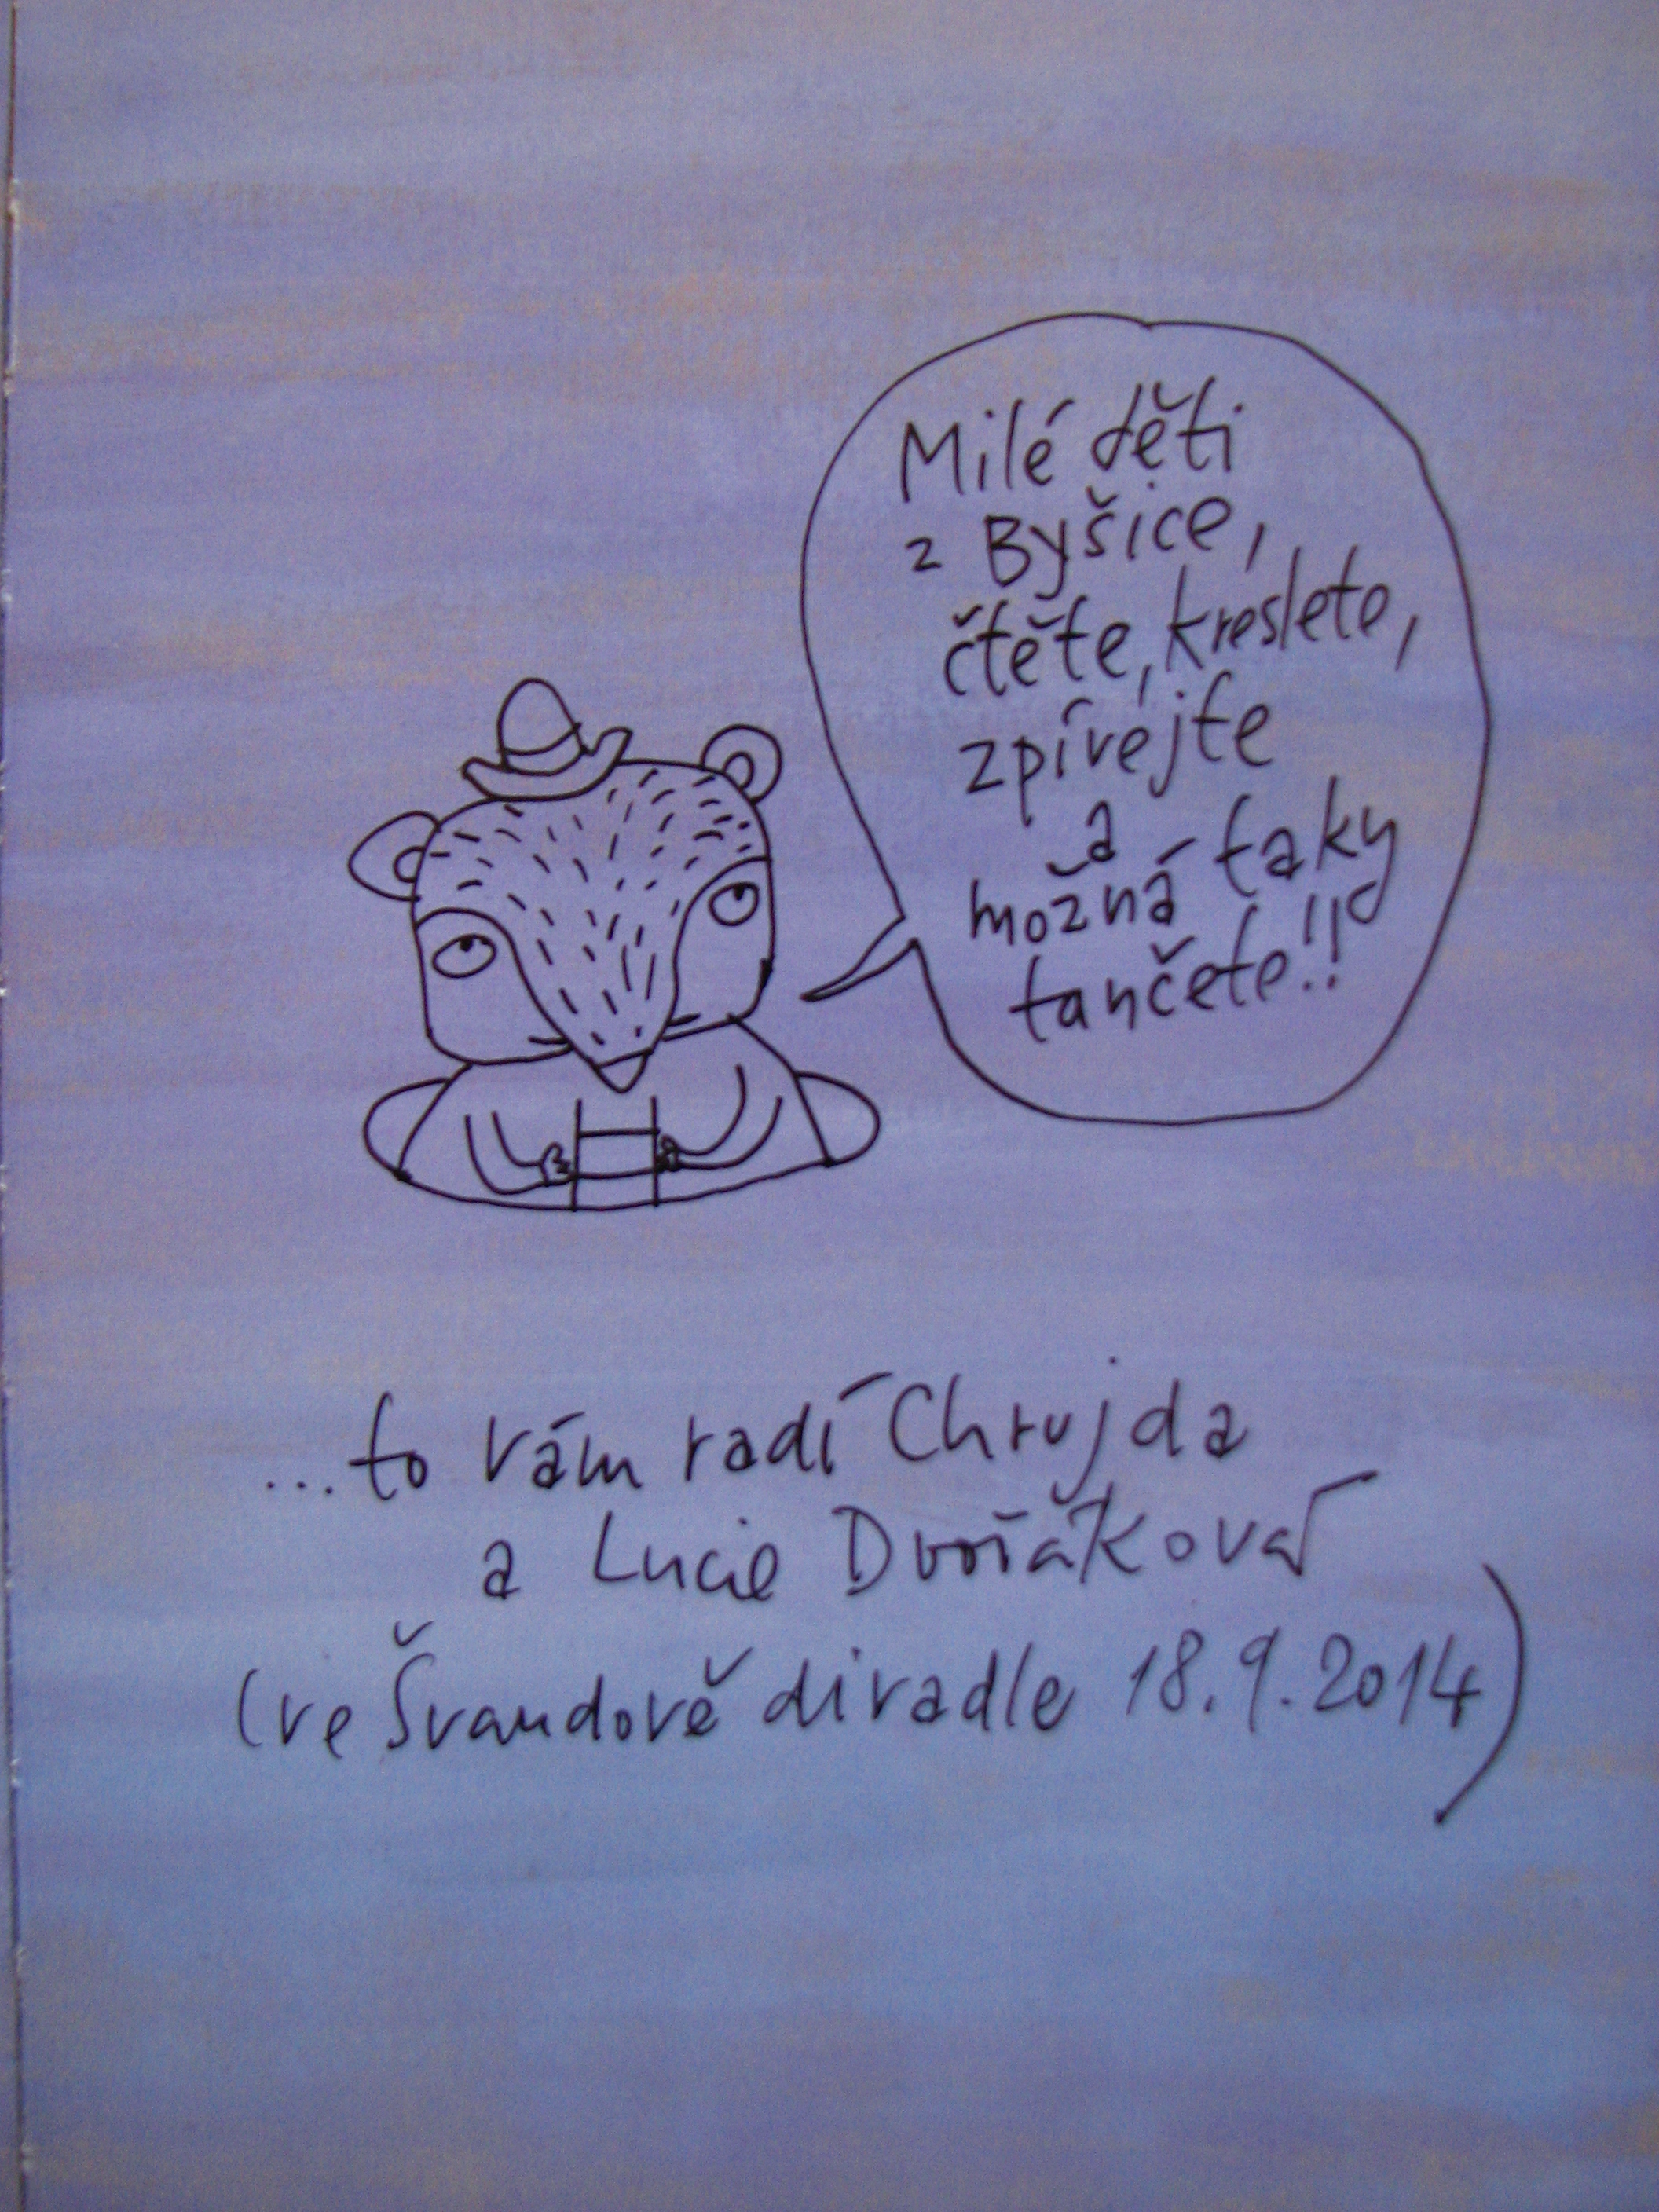 Milé děti
z Byšice,
čtěte, kreslete,
zpívejte
a
možná taky
tančete!!
...to vám radí Chrujda
a Lucie Dvořáková
(ve Švandově divadle 18.9.2014)